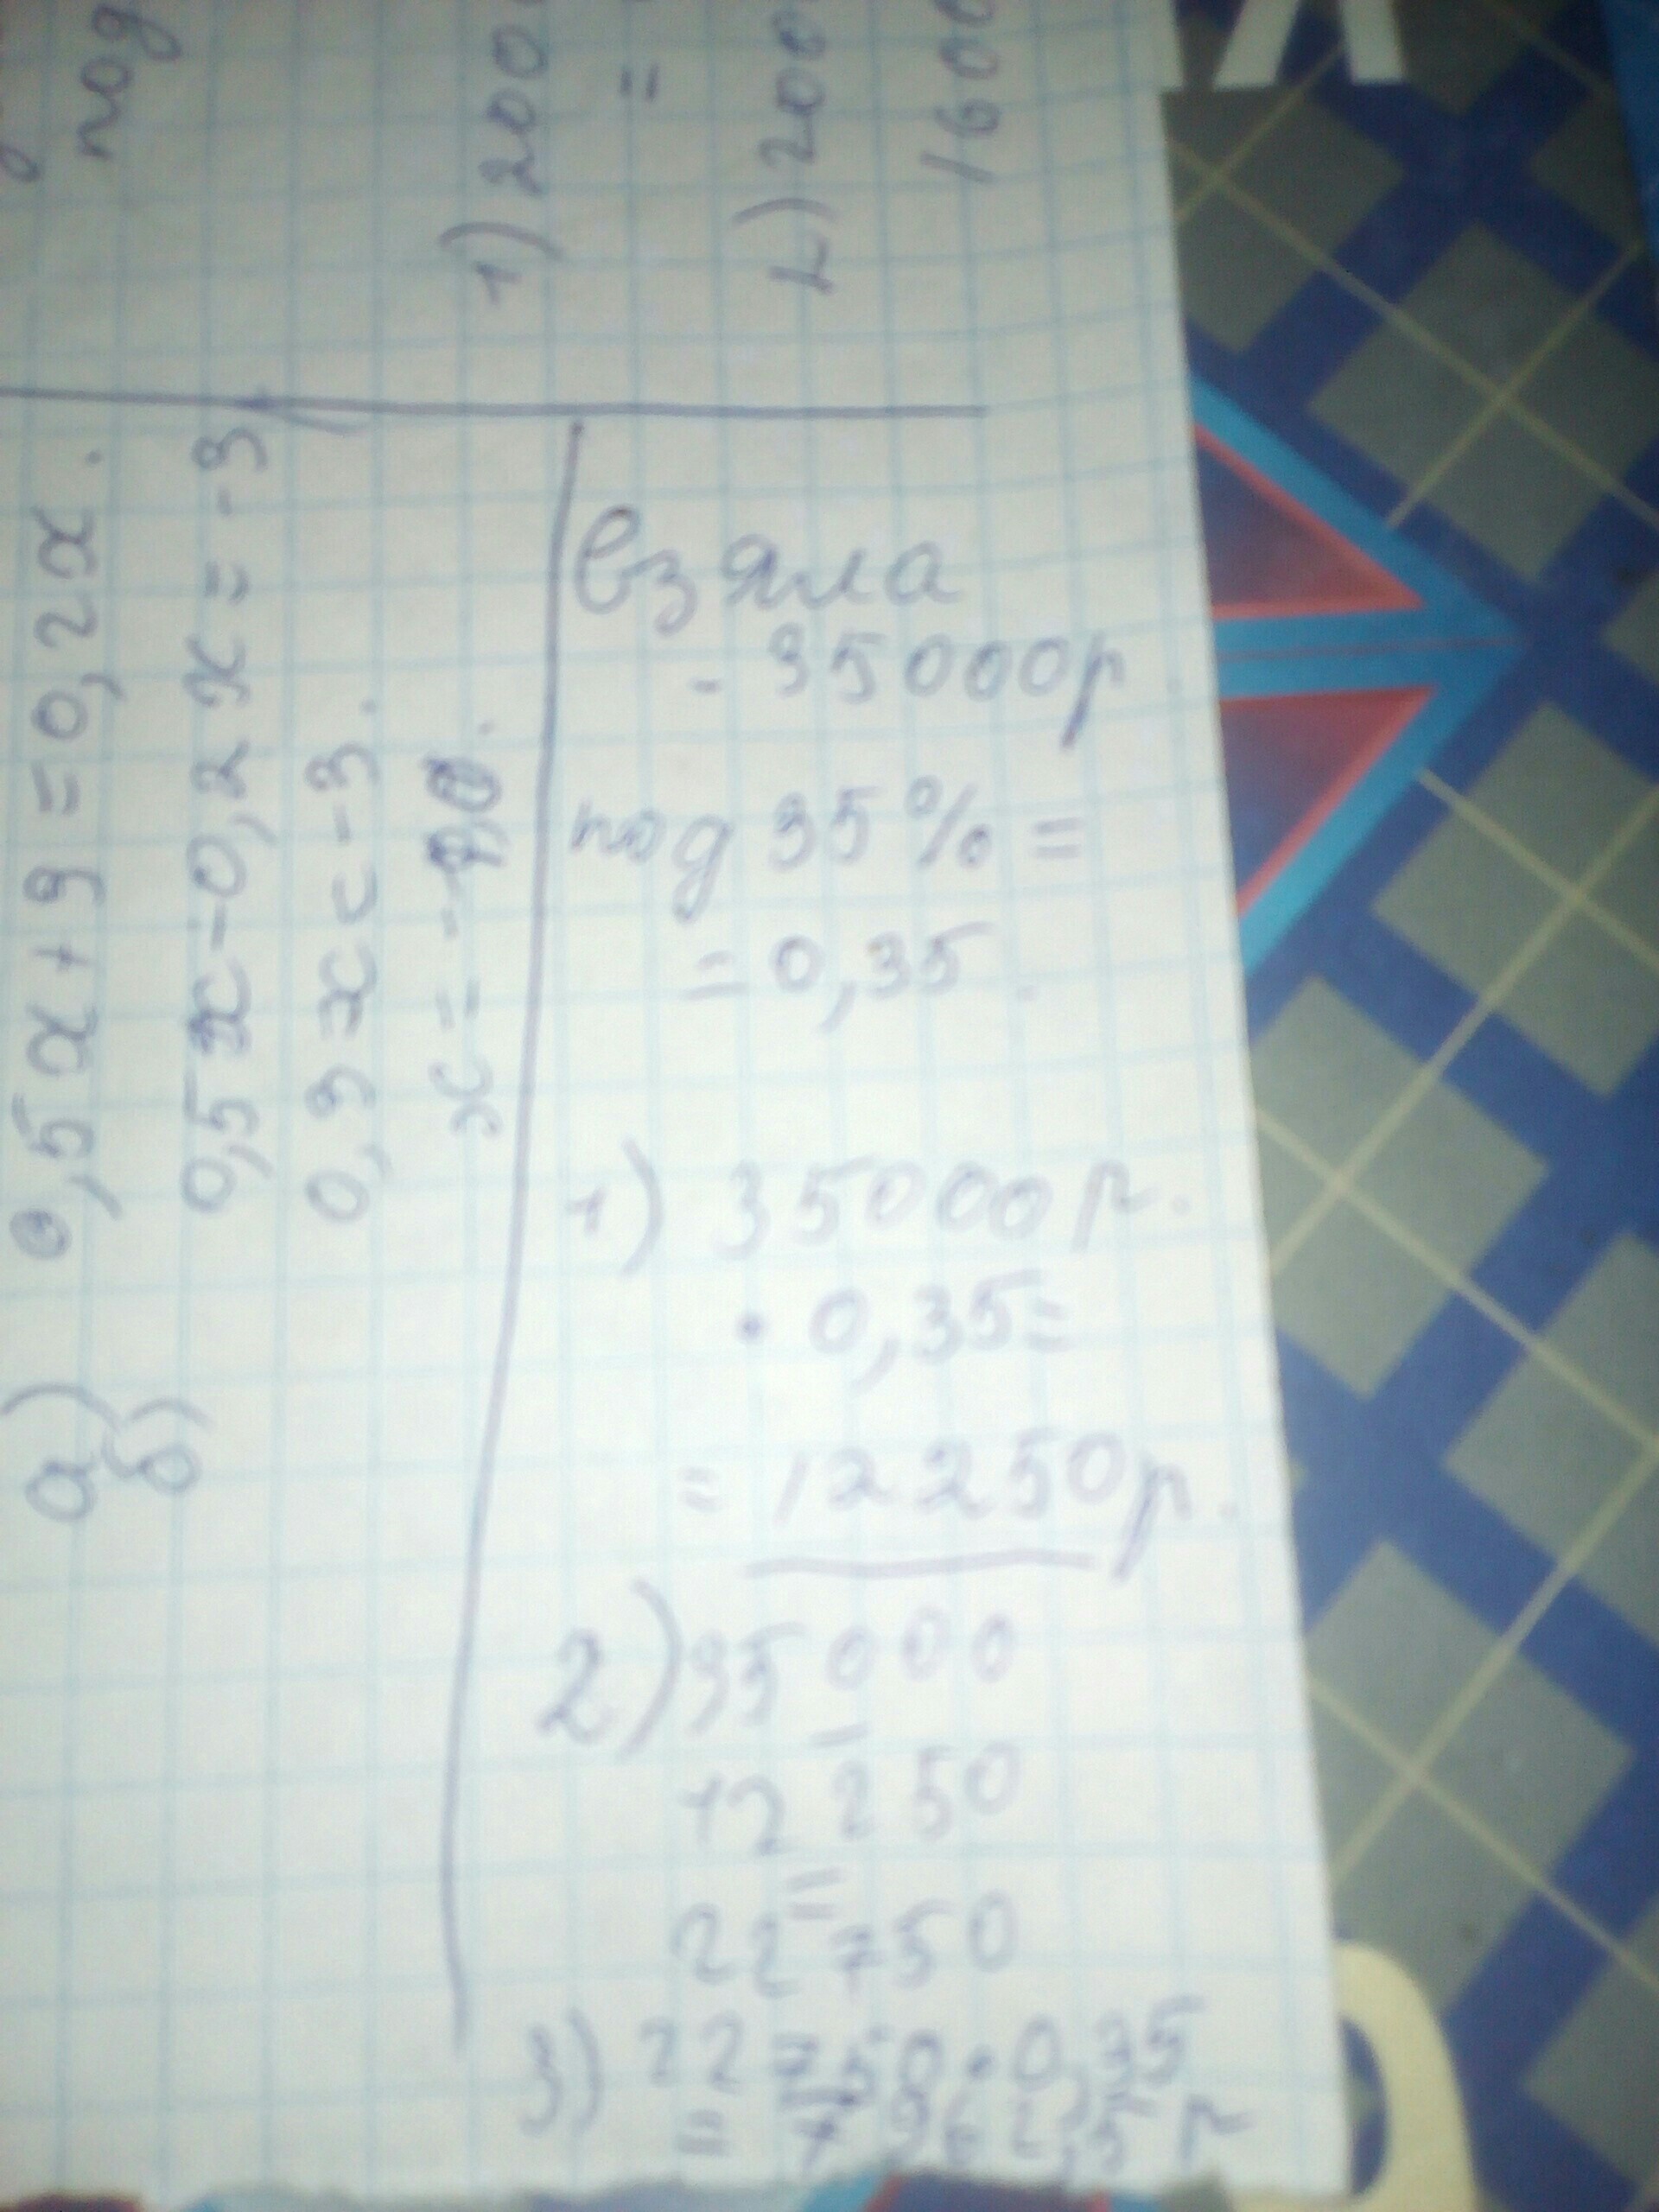 под
1) 200
=
2) 200
1600
а) 0,5x+9=0,2x.
б) 0,5x-0,2x=-3
0,3x=-3.
x=-
взяла
- 35000р.
под 35%=
=0,35.
1) 35000р.
· 0,35=
= 12250р.
2) 35000
-
12250
=
22750
3) 22750·0,35
= 7962,5р